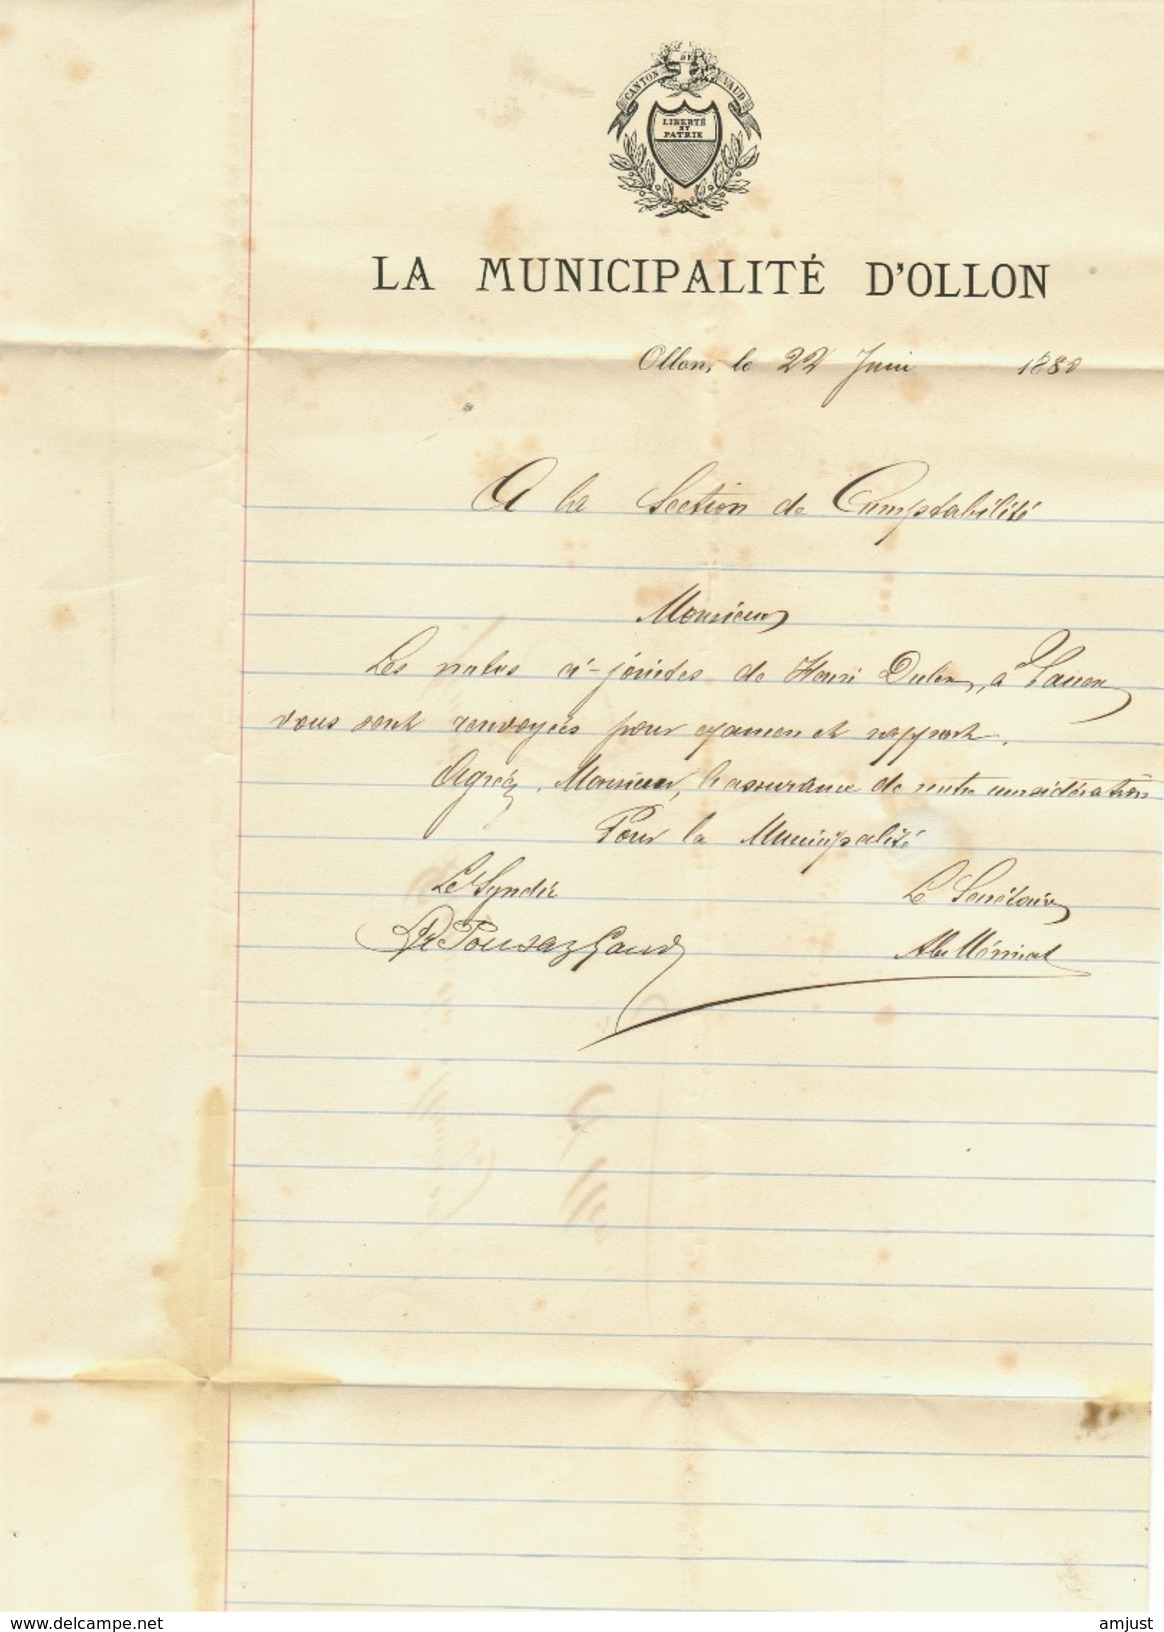 CANTON DE VAUD
LIBERTÉ
ET
PATRIE
LA MUNICIPALITÉ D'OLLON
Ollon, le 22 Juin 1880
A la Section de Comptabilité
Monsieur
Les notes ci-jointes de Henri Dulex, à
vous sont renvoyées pour examen et rapport.
Agréez, Monsieur, l'assurance de notre considération
Pour la Municipalité
Le Syndic Le Secrétaire
delcampe.net
amjust